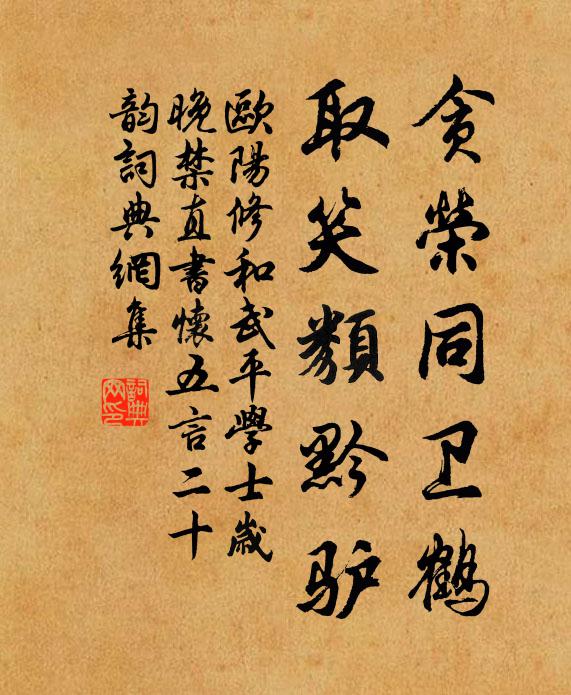 贪榮同卫鶴
取笑類黔驴
歐陽修和武平學士歲
晚禁直書懷五言二十
韵詞典網集
詞典網印